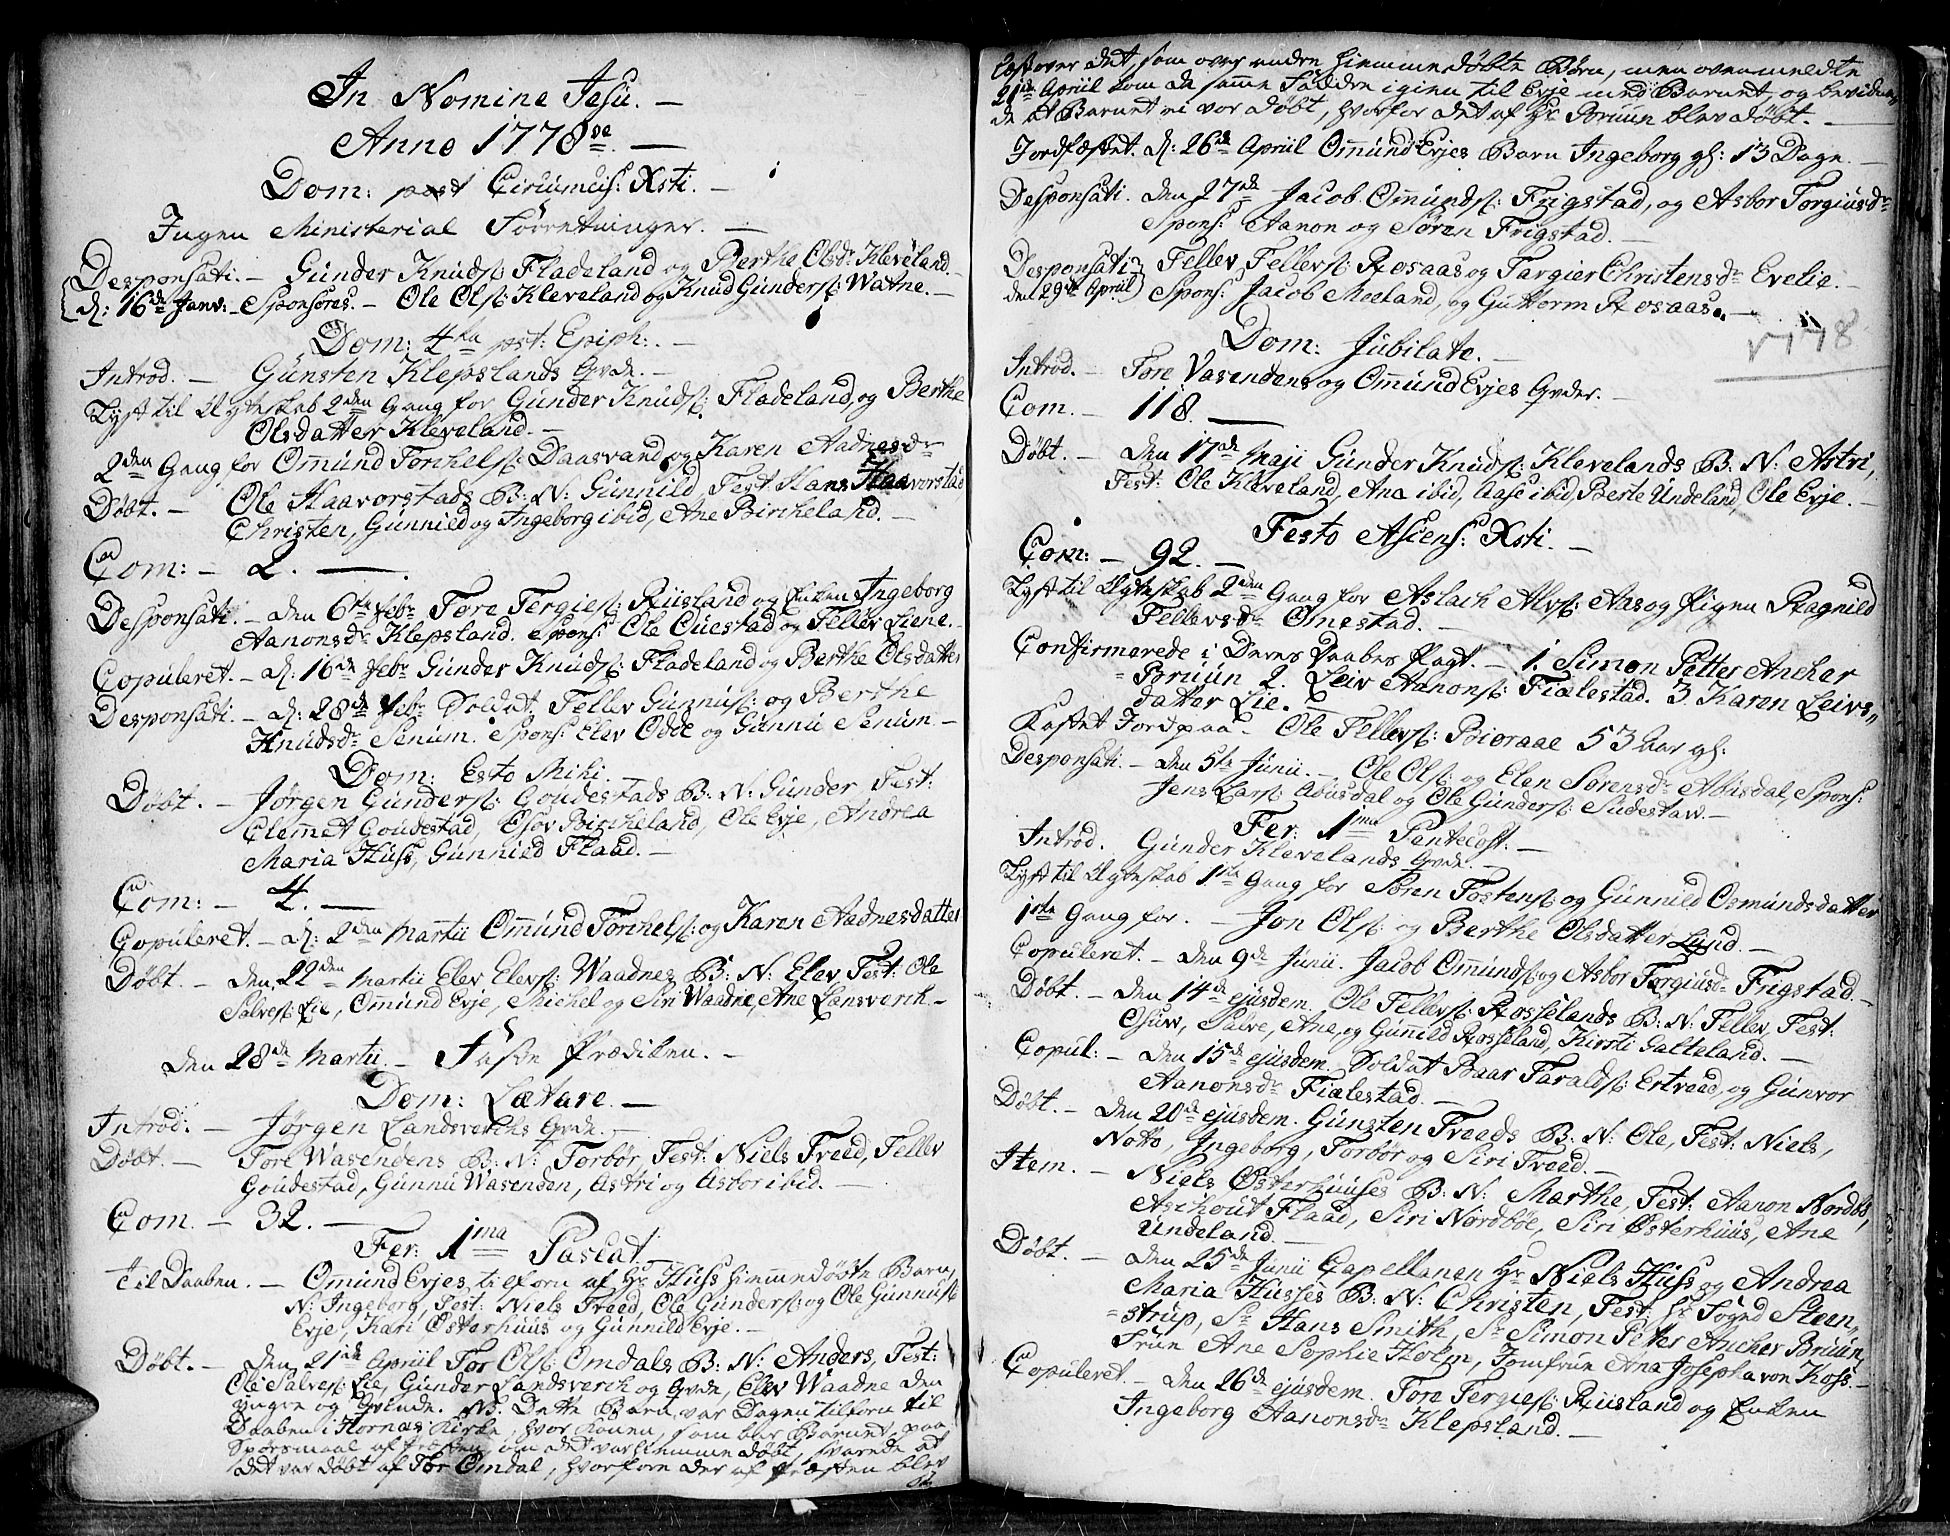 In Nomine Jesu. —
Anno 1778de. —
Dom: post Circumcis: Xsti. —
Ingen Ministerial Forretninger. —
Desponsati. — Gunder Knuds: Fladeland og Berthe Olsdr: Kleveland. —
d: 16de Janv: — Sponsores. — Ole Ols: Kleveland og Knud Gunders: Watne. —
Dom: 4ta pst: Epiph: . —
Introd. — Gunsten Klepslands Qvde. —
Lyst til Ægteskab 2den Gang for Gunder Knuds: Fladeland, og Berthe
Olsdatter Kleveland. —
2den Gang for Omund Torchels: Daasvand og Karen Aadnesdr
Døbt. — Ole Haavorstads B: N: Gunnild, Test: Hans Haavorstad
Christen, Gunnild og Ingeborg ibid, Ane Bircheland. —
Com: — 2. —
Desponsati. — den 6te Febr: Tore Tergies: Riisland og Enken Ingeborg
Aanonsdr Klepsland. Spons: Ole Ouestad og Tellev Liene. —
Copuleret. — d: 16de Febr: Gunder Knuds: Fladeland og Berthe Olsdatter
Desponsati. — d: 28de Febr: Soldat Tellev Gunnus: og Berthe
Knudsdr Senum. Spons: Elev Odde og Gunnu Senum —
Dom: Esto Mihi. —
Døbt. — Jørgen Gunders: Goudestads B: N: Gunder Test:
Clemmet Goudestad, Esov Bircheland, Ole Evje, Andrea
Maria Huss, Gunnild Flaad. —
Com: — 4. —
Copuleret. — d: 2den Martii Omund Torchels: og Karen Aadnesdatter
Døbt. — den 22den Martii Elev Elevs: Waadnes B: N: Elev Test: Ole
Salves: Lie, Omund Evje, Michel og Siri Waadne, Ane Lansverch —
Den 28de Martii. — Faste Prædiken. —
Dom: Lætare. —
Introd: — Jørgen Landsverchs Qvde. —
Døbt. — Tore Wasendens B: N: Torbør, Test: Niels Treed, Tellev
Goudestad, Gunnu Wasenden, Astri og Astor ibid. —
Com. — 32. —
Fer: 1ma Pascat. —
Til Daaben. — Omund Evjes tilforn af Hr Huss hiemmedøbte Barn,
N: Ingeborg, Test: Niels Treed, Ole Gunders: og Ole Gunnus:
Evje, Kari Østerhuus og Gunnild Evje. —
Døbt. — den 21de Apriil Tor Ols: Omdals B: N: Anders, Test:
Ole Salves: Lie, Gunder Landsverch og Qvde, Elev Waadne den
yngre og Qvinde. NB: Dette Barn var Dagen tilforn til
Daaben i Hornæs Kirke, hvor Konen, som bar Barnet, paa
Spørsmaal af Præsten, om det var hiemmedøbt, svarede at
det var døbt af Tor Omdal, hvorfore der af Præsten blev
læst over det, som over andre hiemmedøbte Børn, men ovenmeldte
21de Apriil kom de samme Faddere igien til Evje med Barnet, og bevidne-
de at Barnet ei var døbt, hvorfor det af Hr Bruun blev døbt. —
Jordfæstet. d: 26de Apriil Omund Evjes Barn Ingeborg gl: 13 Dage. —
Desponsati. den 27de Jacob Omunds: Frigstad, og Asbor Torgiusdr
Spons: Aanon og Søren Frigstad. —
Desponsati Tellev Tellevs: Rosaas og Targier Christensdr Evelie. —
den 29de Apriil Spons: Jacob Moeland, og Guttorm Rosaas. —
1778
Dom: Jubilate. —
Introd. — Tore Vasendens og Omund Evjes Qvder. —
Com. — 118. —
Døbt. — Den 17de Maji Gunder Knuds: Klevelands B: N: Astri,
Test: Ole Kleveland, Ana ibid, Aase ibid, Berte Undeland, Ole Evje. —
Festo Ascens: Xsti. —
Com: — 92. —
Lyst til Ægteskab 2den Gang for Aslach Alvs: Aas og Pigen Ragnild
Tellevsdr Omestad. —
Confirmerede i Deres Daabes Pagt. — 1. Simon Petter Ancher
Bruun 2. Leiv Aanons: Fialestad. 3. Karen Leivs-
datter Lie. —
Kastet Jord paa — Ole Tellevs: Bioraae 53 Aar gl:
Desponsati. — den 5te Junii. — Ole Ols: og Elen Sørensdr Abisdal, Spons:
Jens Lars: Abusdal og Ole Gunders: Sudestaw. —
Fer: 1ma Pentecost. —
Introd. Gunder Klevelands Qvde. —
Lyst til Ægteskab 1ste Gang for Søren Tostens: og Gunnild Osmundsdatter
1ste Gang for. — Jon Ols: og Berthe Olsdatter Lund. —
Copuleret. — den 9de Junii. Jacob Omunds: og Asbor Torgiusdr Frigstad. —
Døbt. — den 14de ejusdem. Ole Tellevs: Rosselands B: N: Tellev, Test:
Osuw, Salve, Ane, og Gunild Rosseland, Kirsti Galteland. —
Copul: — den 15de ejusdem. Soldat Baar Taralds: Ertzeed, og Gunvor
Aanonsdr Fialestad. —
Døbt. — den 20de ejusdem. Gunsten Treeds B: N: Ole, Test: Niels,
Notto, Ingeborg, Torbør og Siri Treed. —
Item. — Niels Østerhuuses B: N: Marthe, Test: Aanon Nordbø,
Aschout Flaad, Siri Nordbøe, Siri Østerhuus, Ane
Undeland. —
Døbt. — den 25de Junii Capellanen Hr Niels Huss og Andrea
Maria Husses B: N: Christen, Test: Hr Fogud Steen-
strup, Sr Hans Smith, Sr Simon Petter Ancher Bruun,
Frue Ane Sophie Holm, Jomfrue Ana Josepha von Koss. —
Copuleret. — den 26de ejusdem. Tore Tergies: Riisland og Enken
Ingeborg Aanonsdr Klepsland. —